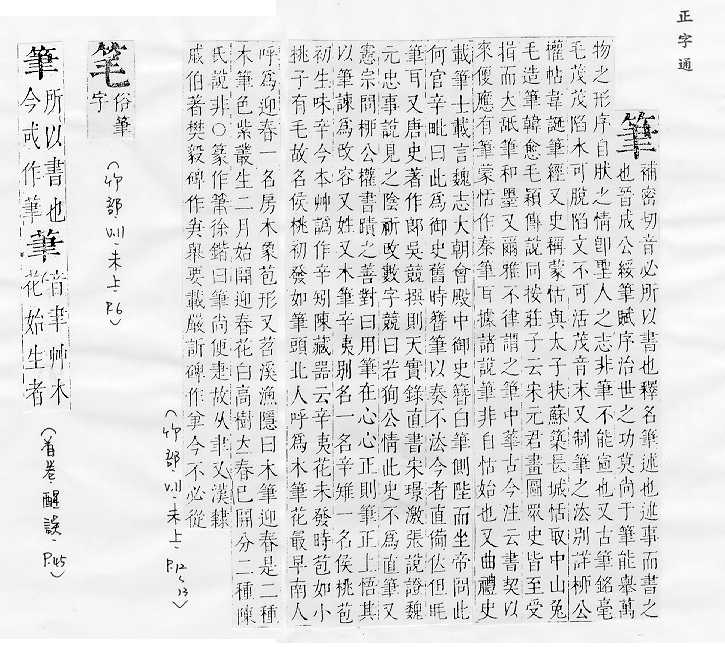 正字通
筆
補密切音必所以書也釋名筆述也述事而書之
也晉成公綏筆賦序治世之功莫尚于筆能舉萬
物之形序自狀之情卽聖人之志非筆不能宣也又古筆銘毫
毛茂茂陷水可脫陷文不可活茂音末又制筆之法別詳柳公
權帖韋誕筆經又史稱蒙恬與太子扶蘇築長城恬取中山兔
毛造筆韓愈毛穎傳說同按莊子云宋元君畫圖衆史皆至受
揖而立舐筆和墨又爾雅不律謂之筆中華古今注云書契以
來便應有筆蒙恬作秦筆耳據諸說筆非自恬始也又曲禮史
載筆士載言魏志大朝會殿中御史簪白筆側陛而坐帝問此
何官辛毗曰此爲御史舊時簪筆以奏不法今者直備位但眊
筆耳又唐史著作郎吳兢撰則天實錄直書宋璟激張說證魏
元忠事說見之陰祈改數字兢曰若徇公情此史不爲直筆又
憲宗問柳公權書蹟之善對曰用筆在心心正則筆正上悟其
以筆諫爲改容又姓又木筆辛夷別名一名辛雉一名侯桃苞
初生味辛今本艸譌作辛矧陳藏器云辛夷花未發時苞如小
桃子有毛故名侯桃初發如筆頭北人呼爲木筆花最早南人
呼爲迎春一名房木象苞形又苕溪漁隱曰木筆迎春是二種
木筆色紫叢生二月始開迎春花白高樹立春已開分二種陳
氏說非○篆作筆徐鍇曰筆尚便疌故从聿又漢隸
戚伯著樊毅碑作 舉要載嚴訢碑作 今不必從
(竹部·VII·未上·P.12~13)
笔
俗筆
字
(竹部·VII·未上·P.6)
筆所以書也筆音聿艸木
今或作筆花始生者
(首卷·醒誤·P.45)